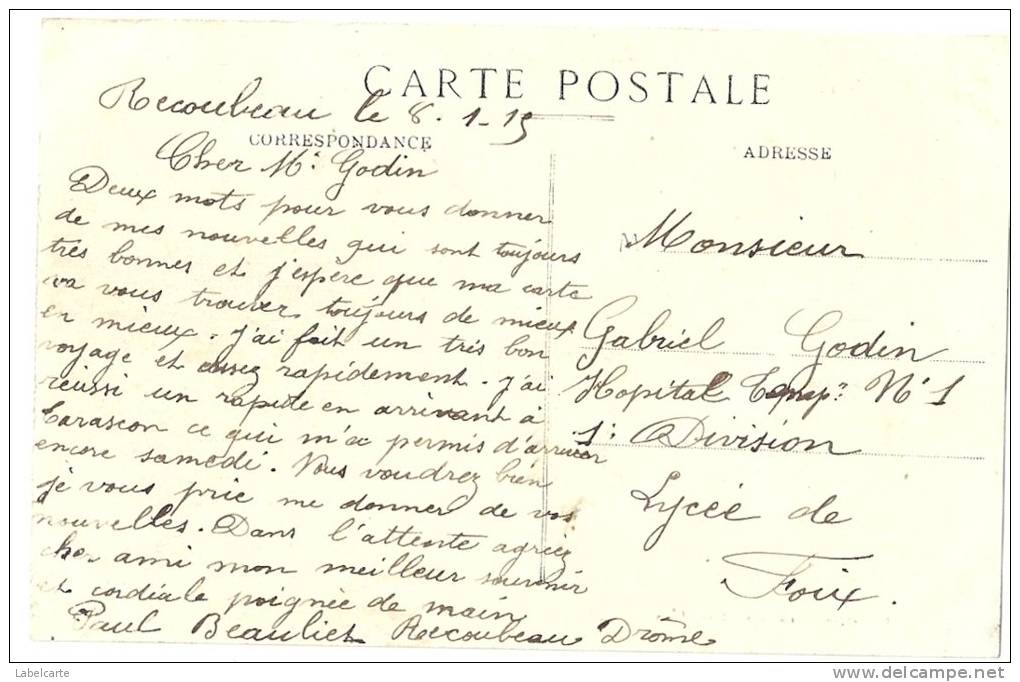 CARTE POSTALE
Recoubeau le 8-1-15
CORRESPONDANCE
Cher Mr Godin
Deux mots pour vous donner
de mes nouvelles qui sont toujours
très bonnes et j'espère que ma carte
va vous trouver toujours de mieux
en mieux. J'ai fait un très bon
voyage et assez rapidement. J'ai
réussi un rapide en arrivant à
Tarascon ce qui m'a permis d'arriver
encore samedi. Vous voudrez bien
je vous prie me donner de vos
nouvelles. Dans l'attente agréez
cher ami mon meilleur souvenir
et cordiale poignée de main
Paul Beauliet Recoubeau Drôme
ADRESSE
Monsieur
Gabriel Godin
Hopital Temp: N° 1
1: Division
Lycée de
Foix.
Labelcarte
http://www.delcampe.net